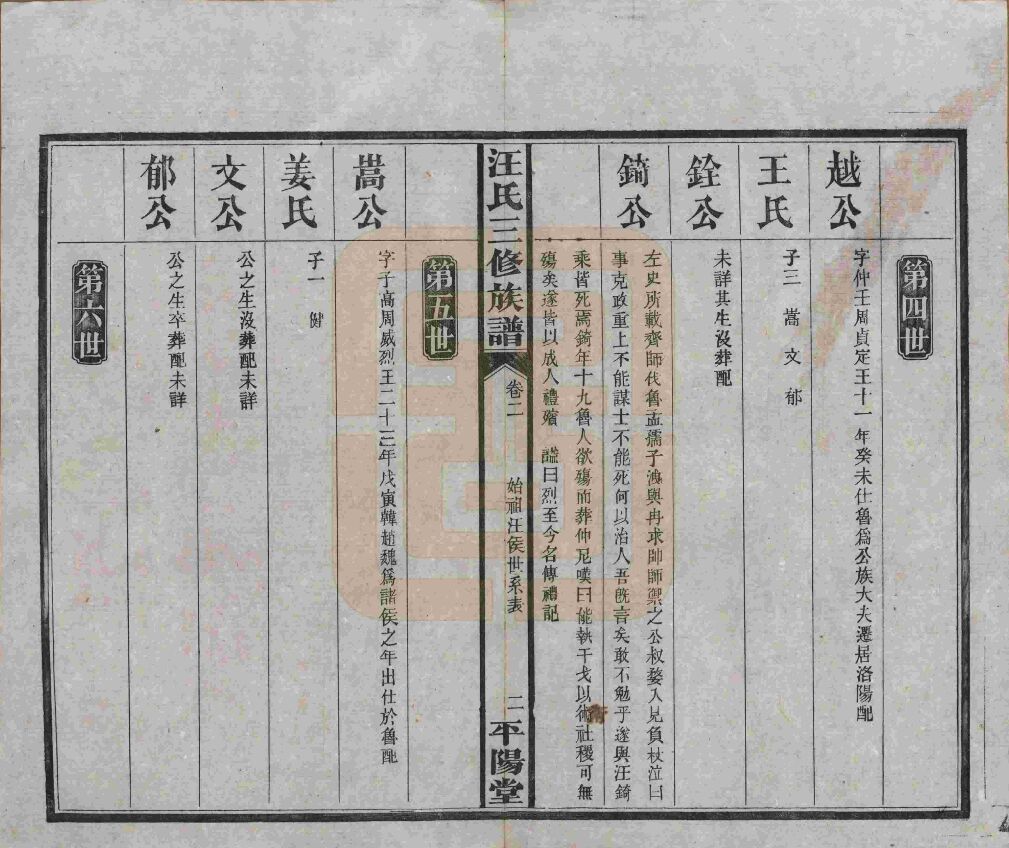 第四世
越公
字仲壬周貞定王十一年癸未仕魯爲公族大夫遷居洛陽配
王氏
子三 嵩 文 郁
銓公
未詳其生沒葬配
錡公
左史所載齊師伐魯孟孺子洩與冉求帥師禦之公叔婺入見負杖泣曰
事克政重上不能謀士不能死何以治人吾旣言矣敢不勉乎遂與汪錡
乘皆死焉錡年十九魯人欲殤而葬仲尼嘆曰能執干戈以衛社稷可無
殤矣遂皆以成人禮殯 謚曰烈至今名傳禮記
汪氏三修族譜
卷二
始祖汪侯世系表
二
平陽堂
第五世
嵩公
字子高周威烈王二十三年戊寅韓趙魏爲諸侯之年出仕於魯配
姜氏
子一 健
文公
公之生沒葬配未詳
郁公
公之生卒葬配未詳
第六世